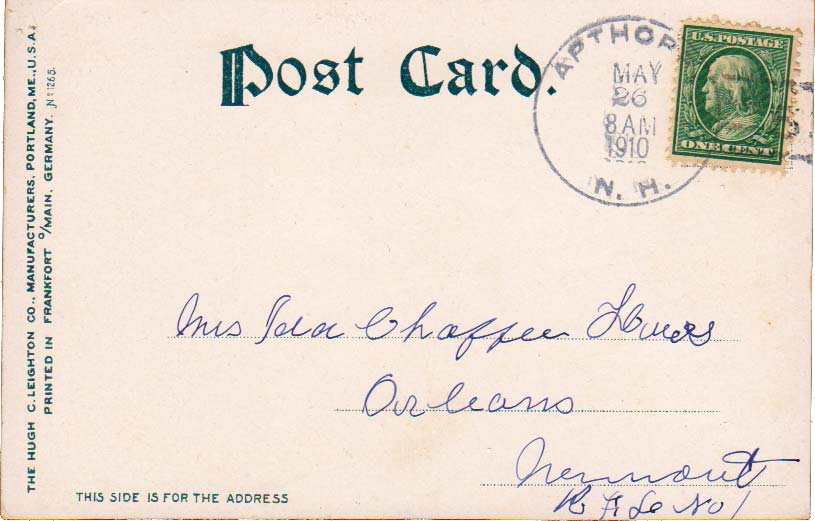 Post Card.
APTHOR
MAY
26
8 AM
1910
N. H.
U.S. POSTAGE
ONE CENT
THE HUGH C. LEIGHTON CO., MANUFACTURERS, PORTLAND, ME., U.S.A.
PRINTED IN FRANKFORT o/MAIN, GERMANY. No 1265.
Mrs Ida Chaffee
Orleans
Vermont
R F De No 1
THIS SIDE IS FOR THE ADDRESS